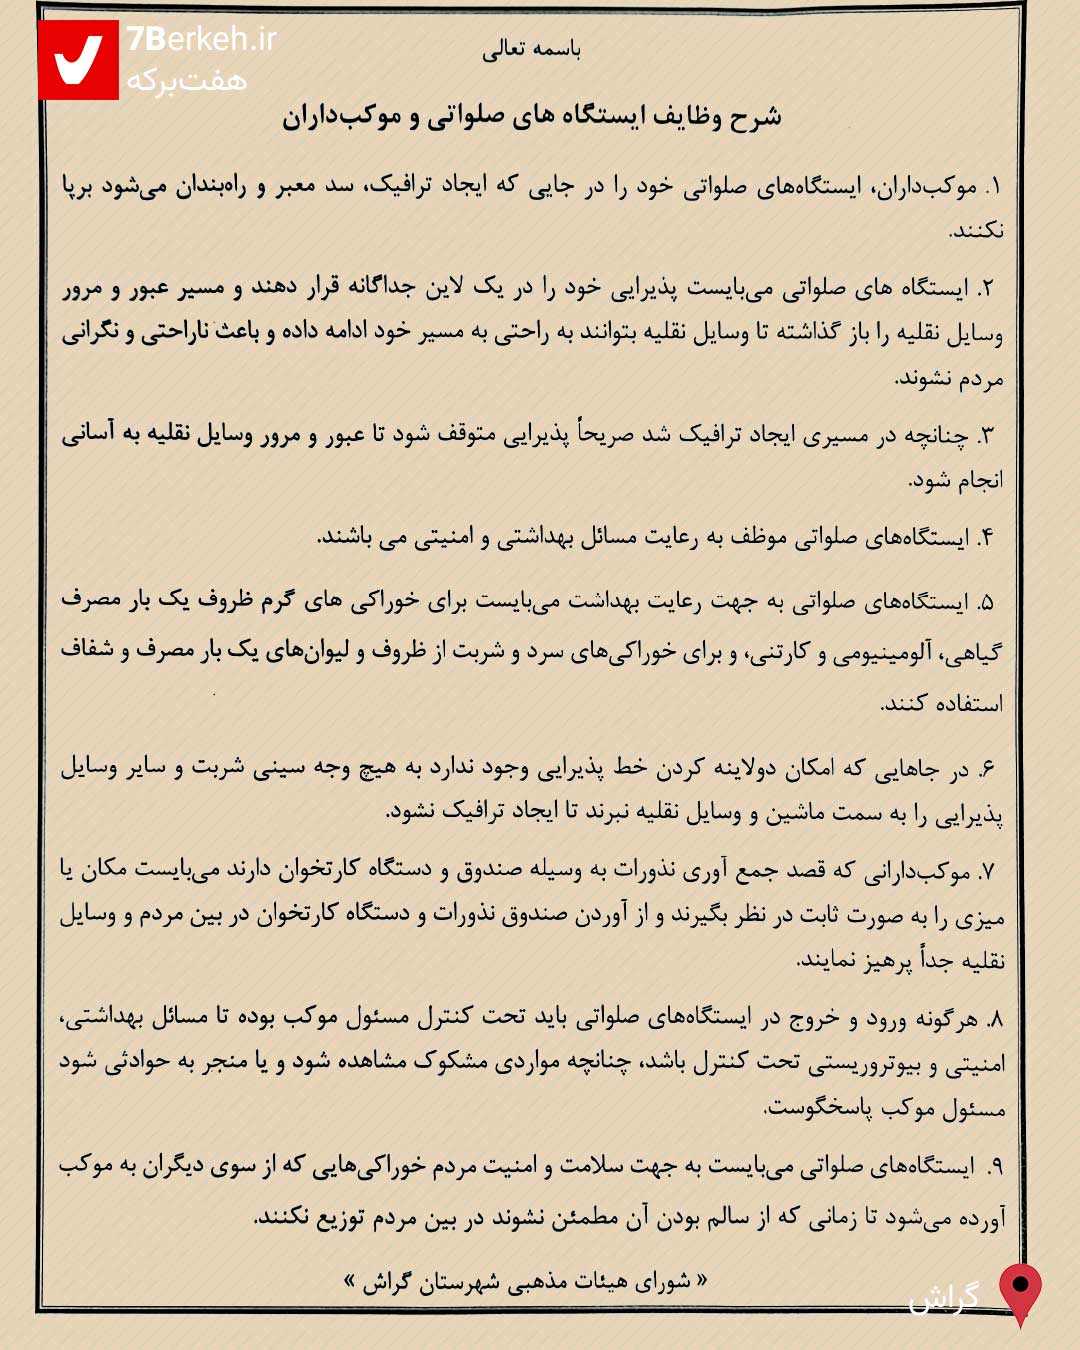 7Berkeh.ir
هفت‌برکه
باسمه تعالی
شرح وظایف ایستگاه های صلواتی و موکب‌داران
۱. موکب‌داران، ایستگاه‌های صلواتی خود را در جایی که ایجاد ترافیک، سد معبر و راه‌بندان می‌شود برپا
نکنند.
۲. ایستگاه های صلواتی می‌بایست پذیرایی خود را در یک لاین جداگانه قرار دهند و مسیر عبور و مرور
وسایل نقلیه را باز گذاشته تا وسایل نقلیه بتوانند به راحتی به مسیر خود ادامه داده و باعث ناراحتی و نگرانی
مردم نشوند.
۳. چنانچه در مسیری ایجاد ترافیک شد صریحاً پذیرایی متوقف شود تا عبور و مرور وسایل نقلیه به آسانی
انجام شود.
۴. ایستگاه‌های صلواتی موظف به رعایت مسائل بهداشتی و امنیتی می باشند.
۵. ایستگاه‌های صلواتی به جهت رعایت بهداشت می‌بایست برای خوراکی های گرم ظروف یک بار مصرف
گیاهی، آلومینیومی و کارتنی، و برای خوراکی‌های سرد و شربت از ظروف و لیوان‌های یک بار مصرف و شفاف
استفاده کنند.
۶. در جاهایی که امکان دولاینه کردن خط پذیرایی وجود ندارد به هیچ وجه سینی شربت و سایر وسایل
پذیرایی را به سمت ماشین و وسایل نقلیه نبرند تا ایجاد ترافیک نشود.
۷. موکب‌دارانی که قصد جمع آوری نذورات به وسیله صندوق و دستگاه کارتخوان دارند می‌بایست مکان یا
میزی را به صورت ثابت در نظر بگیرند و از آوردن صندوق نذورات و دستگاه کارتخوان در بین مردم و وسایل
نقلیه جداً پرهیز نمایند.
۸. هرگونه ورود و خروج در ایستگاه‌های صلواتی باید تحت کنترل مسئول موکب بوده تا مسائل بهداشتی،
امنیتی و بیوتروریستی تحت کنترل باشد، چنانچه مواردی مشکوک مشاهده شود و یا منجر به حوادثی شود
مسئول موکب پاسخگوست.
۹. ایستگاه‌های صلواتی می‌بایست به جهت سلامت و امنیت مردم خوراکی‌هایی که از سوی دیگران به موکب
آورده می‌شود تا زمانی که از سالم بودن آن مطمئن نشوند در بین مردم توزیع نکنند.
« شورای هیئات مذهبی شهرستان گراش »
گراش